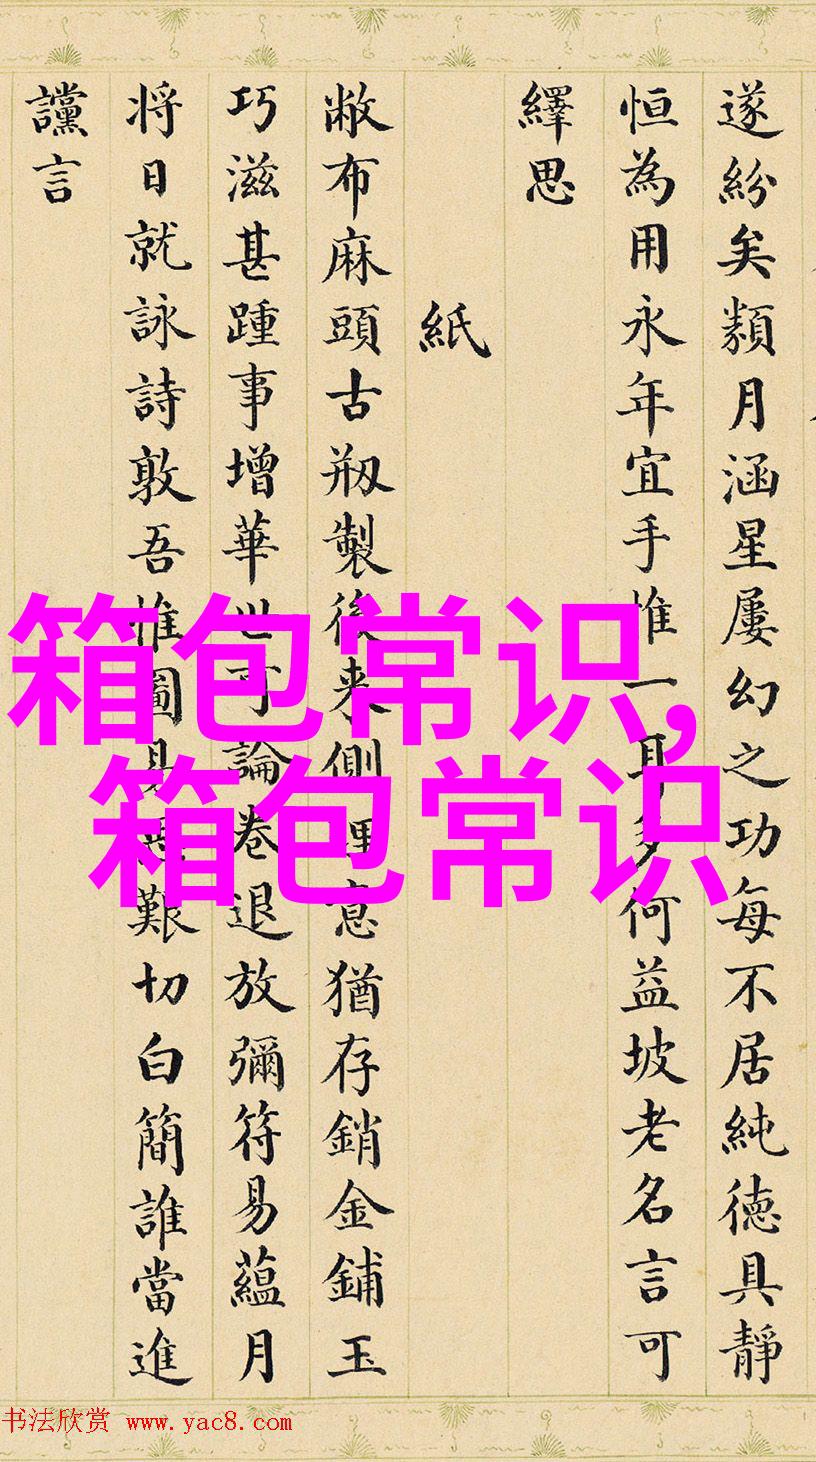 遂紛矣類月涵星屡幻之功每不居純德具靜
恒為用永年宜手惟一耳多何益坡老名言可
繹思
紙
敝布麻頭古剏製後来側理意猶存銷金鋪玉
巧滋甚踵事增華世可論卷退放彌符易蘊月
将日就詠詩敦吾惟圖易思艱切白簡誰當進
讜言
箱包常识,
箱包常识
书法欣赏 www.yac8.com